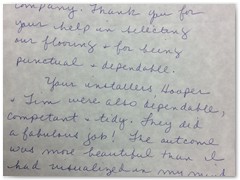 company. Thank you for
your help in selecting
our flooring + for being
punctual + dependable.
Your installers Hooper
+ Tim were also dependable,
competant + tidy. They did
a fabulous job! The outcome
was more beautiful than I
had visualized in my mind